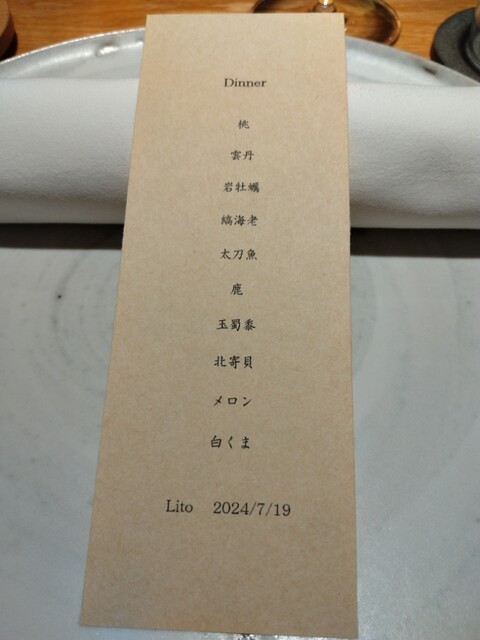 Dinner
桃
雲丹
岩牡蠣
縞海老
太刀魚
鹿
玉蜀黍
北寄貝
メロン
白くま
Lito 2024/7/19